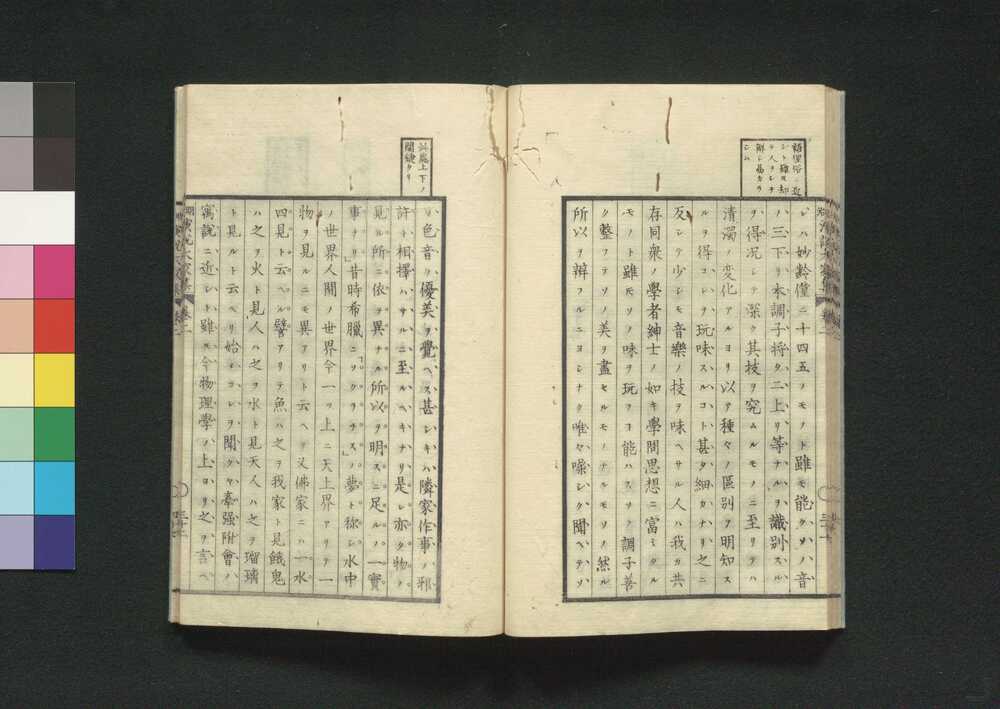 レハ妙齡僅ニ十四五ノモノト雖モ能クソノハ音
ハ三下リ本調子將タ二上リ等ナルヲ識別スル
ヲ得況シテ深ク其技ヲ究ムルモノニ至リテハ
清濁ノ變化アルヨリ以テ種々ノ區別ヲ明知ス
ルヲ得コレヲ玩味スルコト甚タ細カナリ之ニ
反シテ少シモ音樂ノ技ヲ味ヘサル人ハ我カ共
存同衆ノ學者紳士ノ如キ學問思想ニ富ミタル
モノト雖モソノ味ヲ玩フ能ハスソノ調子善
ク整フテソノ美ヲ盡セルモノナルモソノ然ル
所以ヲ辯フルニヨシナク唯々噪シク聞ヘテソ
此處上下ノ
關鍵タリ
ノ色音ノ優美ヲ覺ヘス甚シキハ隣家作事ノ邪
許ト相擇ハサルニ至ルヘキナリ是レ亦タ物ノ
見ル所ニ依テ異ナル所以ヲ明スニ足ルノ一實
事ナリ昔時希臘ニソクラテスノ夢ト稱シ水中
ノ世界人間ノ世界今一ツ上ニ天上界アリテ一
物ヲ見ルニモ異アリト云ヘリ又佛家ニハ一水
四見ト云ヘル譬アリテ魚ハ之ヲ我家ト見餓鬼
ハ之ヲ火ト見人ハ之ヲ水ト見天人ハ之ヲ瑠璃
ト見ルト云ヘリ始メコレヲ聞クヤ牽强附會ノ
寓說ニ近シト雖モ今物理學ノ上ヨリ之ヲ言ヘ